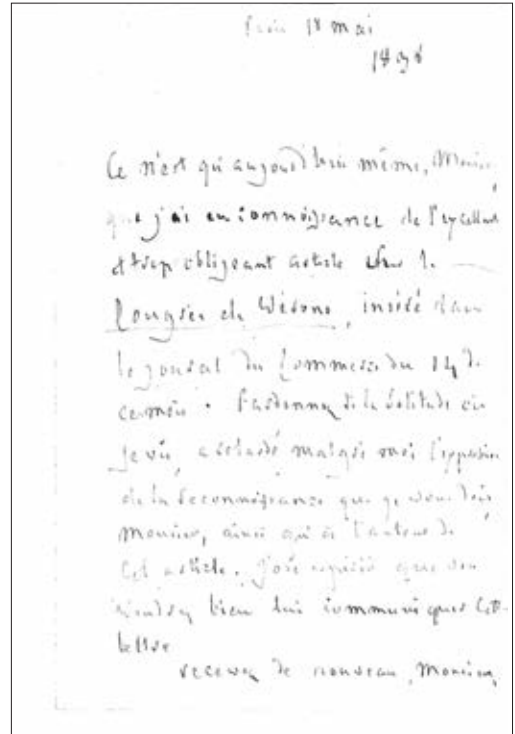 Paris 18 mai
1838
Ce n'est qu'aujourd'hui même, Monsieur,
que j'ai eu connoissance de l'excellent
et trop obligeant article sur le
Congrès de Vérone, inséré dans
le journal du Commerce du 14 de
ce mois. Pardonnez si la solitude où
je vis, a retardé malgré moi l'expression
de la reconnoissance que je vous dois
Monsieur, ainsi qu'à l'auteur de
cet article. J'ose espérer que vous
voudrez bien lui communiquer cette
lettre
recevez de nouveau, Monsieur,